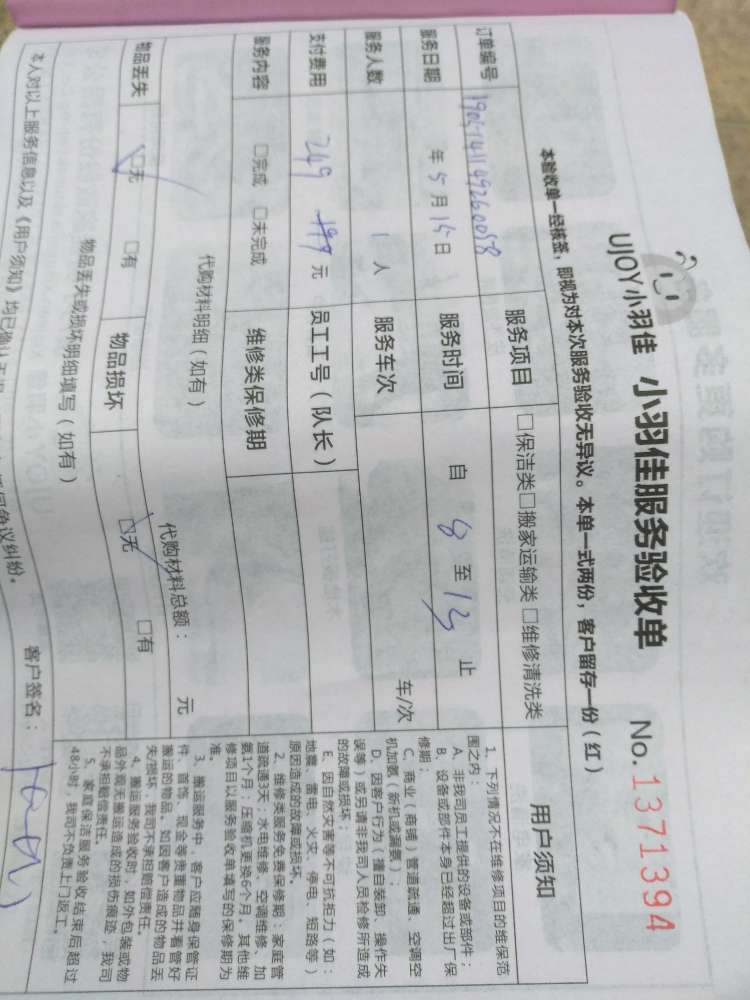 UJOY小羽佳 小羽佳服务验收单 No.1371394
本验收单一经核签，即视为对本次服务验收无异议。本单一式两份，客户留存一份（红）
订单编号 服务项目 □保洁类□搬家运输类□维修清洗类
服务日期 年 5 月 15 日 服务时间 自 8 至 12 止
服务人数 1 人 服务车次 车/次
支付费用 249 199 元 员工工号（队长）
服务内容 □完成 □未完成 维修类保修期
代购材料明细（如有） 代购材料总额： 元
物品丢失 □无 □有 物品损坏 □无 □有
物品丢失或损坏明细填写（如有）
本人对以上服务信息以及《用户须知》均已确认无误，
同争议纠纷。 客户签名：
用户须知
1、下列情况不在维修项目的维保范
围之内：
A、非我司员工提供的设备或部件；
B、设备或部件本身已经超过出厂保
修期；
C、商业（商铺）管道疏通、空调空
机加氨（新机或漏氨）；
D、因客户行为（擅自装卸、操作失
误等）或另请非我司人员检修所造成
的故障或损坏；
E、因自然灾害等不可抗拒力（如：
地震、雷电、火灾、停电、短路等）
原因造成的故障或损坏。
2、维修类服务免费保修期：家庭管
道疏通3天；水电维修、空调维修、加
氨1个月；压缩机更换6个月，其他维
修项目以服务验收单填写的保修期为
准。
3、搬运服务中，客户应随身保管证
件、首饰、现金等贵重物品并看管好
搬运的物品。如因客户造成的物品丢
失/损坏，我司不承担赔偿责任。
4、搬运服务验收时，如外包装或物
品外观无搬运造成的损伤痕迹，我司
不承担赔偿责任。
5、家庭保洁服务验收结束后超过
48小时，我司不负责上门返工。